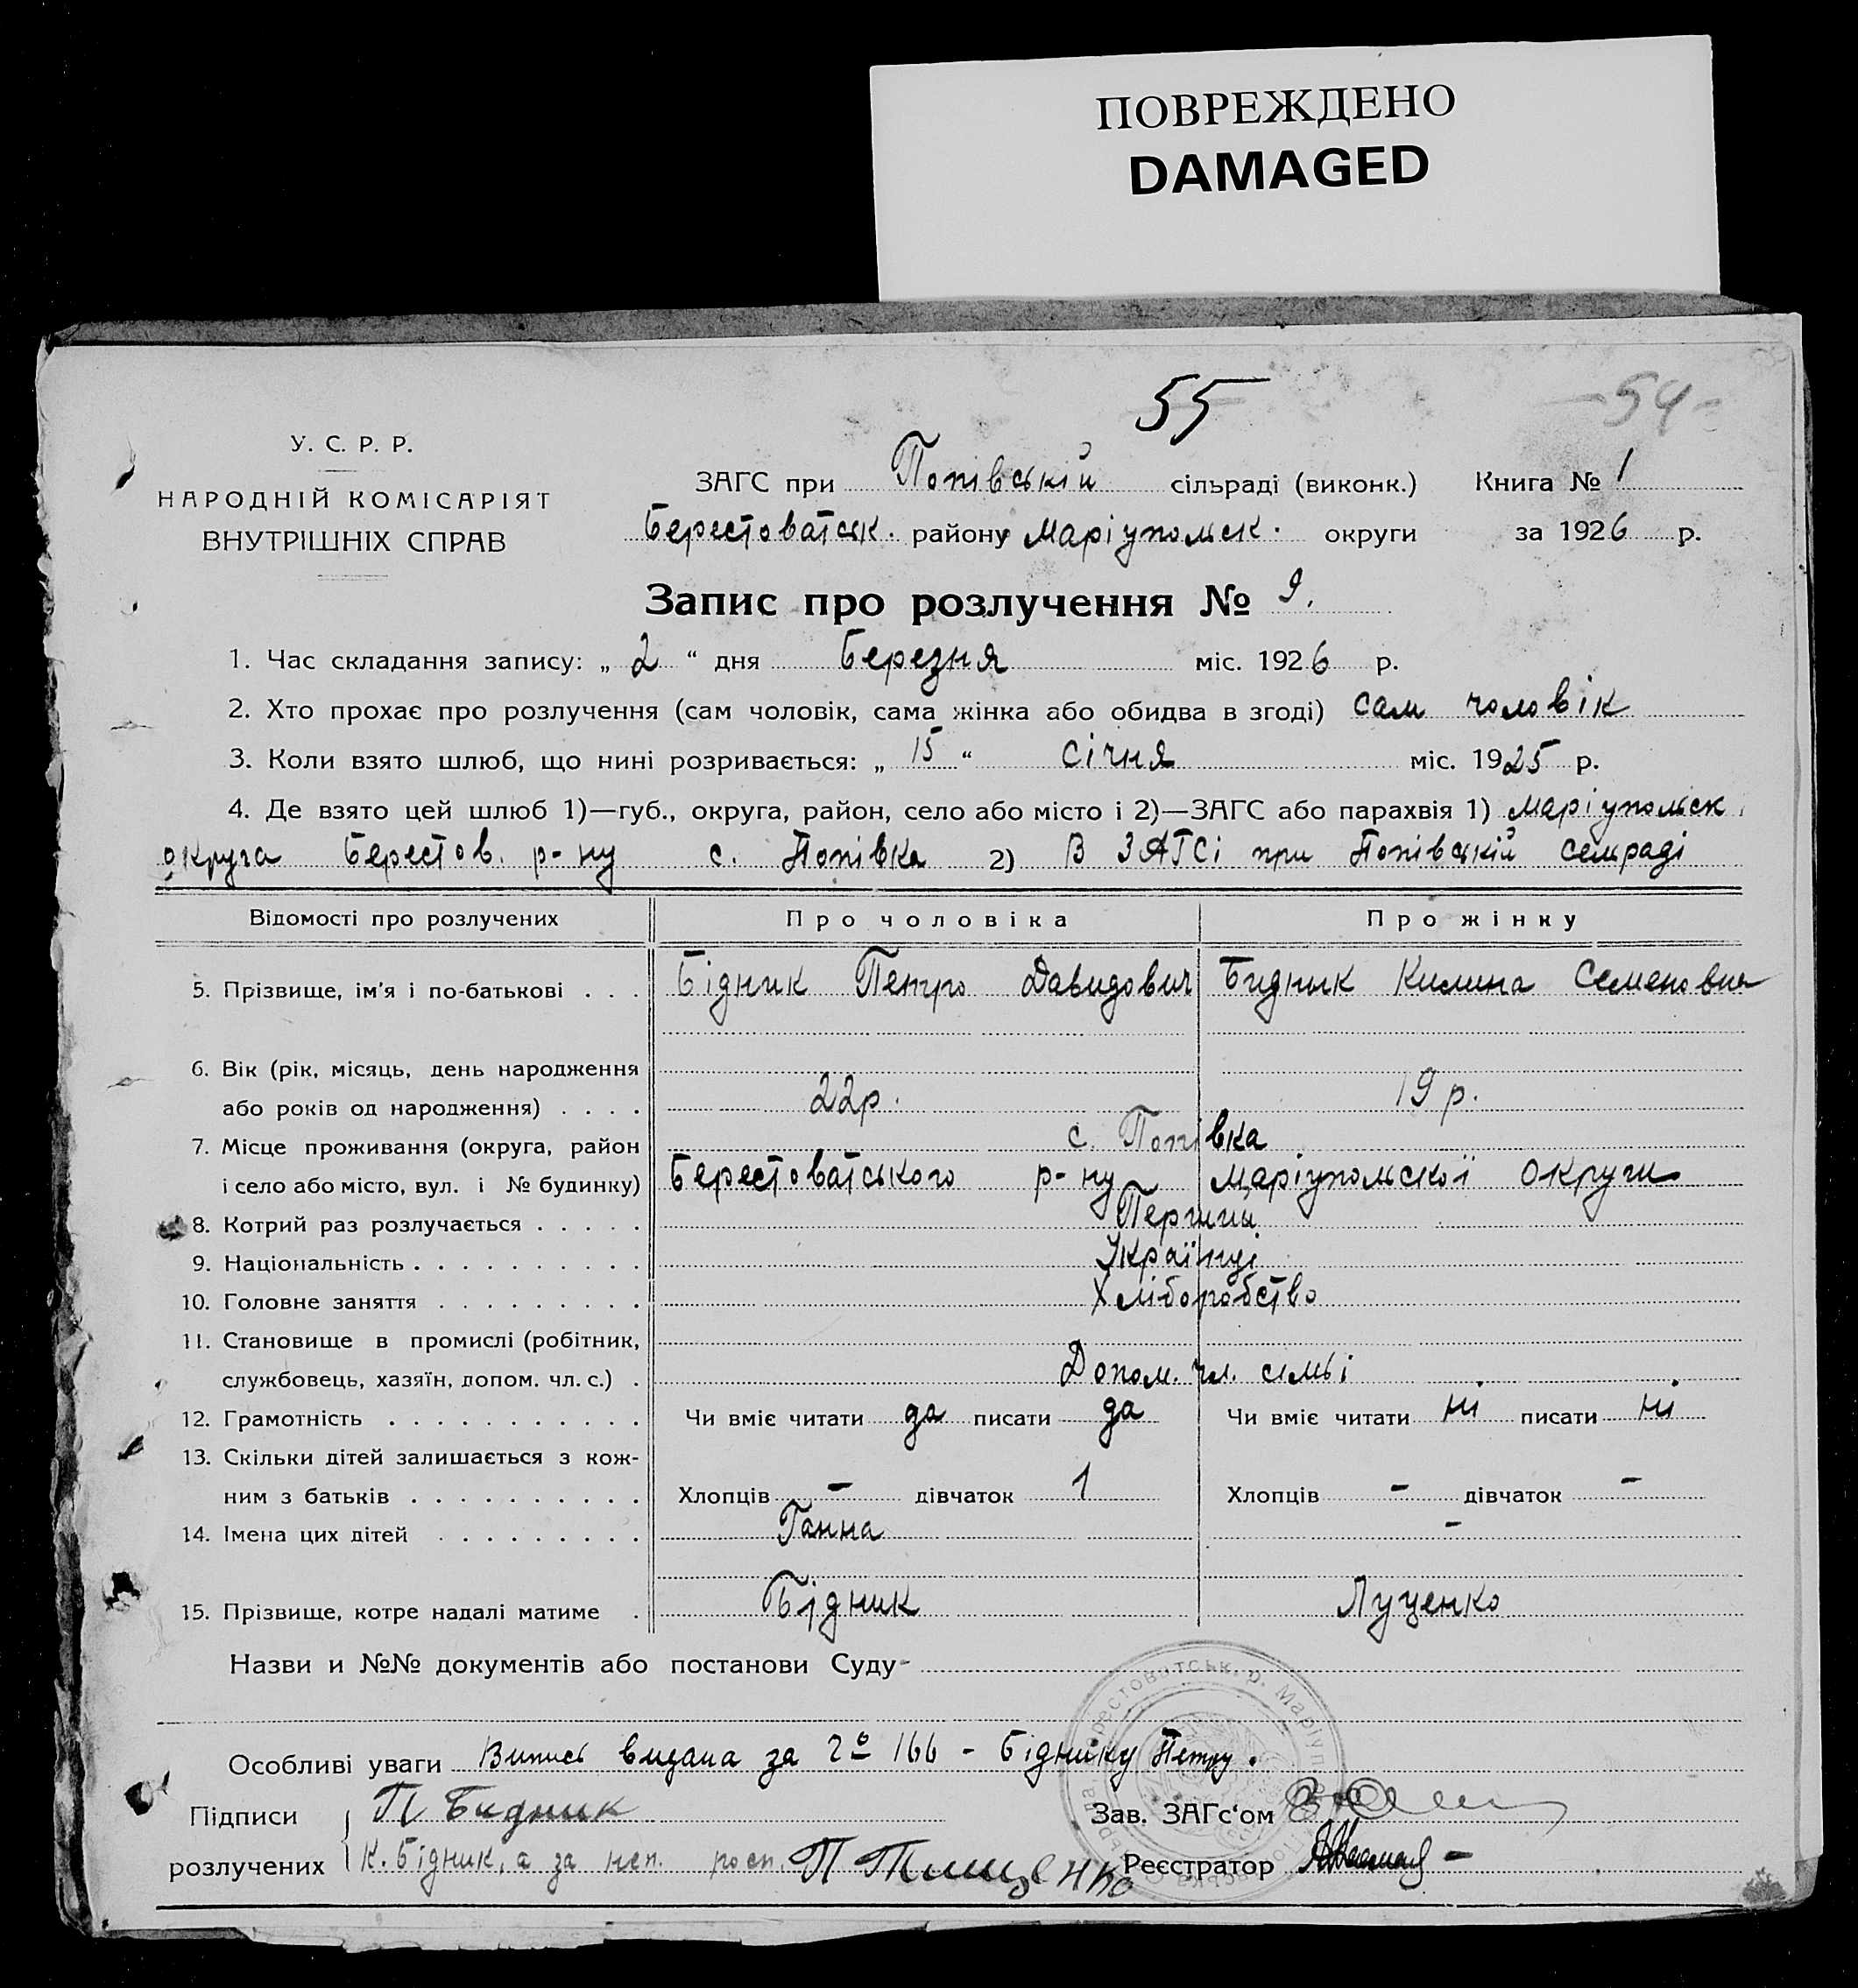 ПОВРЕЖДЕНО
DAMAGED
55
-54-
У. С. Р. Р.
НАРОДНІЙ КОМІСАРІЯТ
ВНУТРІШНІХ СПРАВ
ЗАГС при Попівській сільраді (виконк.) Книга № 1
Берестоватськ. району Маріупольск. округи за 1926 р.
Запис про розлучення № 9.
1. Час складання запису: „ 2 “ дня Березня міс. 1926 р.
2. Хто прохає про розлучення (сам чоловік, сама жінка або обидва в згоді) сам чоловік
3. Коли взято шлюб, що нині розривається: „ 15 “ січня міс. 1925 р.
4. Де взято цей шлюб 1)—губ., округа, район, село або місто і 2)—ЗАГС або парахвія 1) Маріупольск
округа Берестов. р-ну с. Попівка 2) В ЗАГСі при Попівській сельраді
Відомості про розлучених Про чоловіка Про жінку
5. Прізвище, ім'я і по-батькові . . . Бідник Петро Давидович Бидник Килина Семеновна
6. Вік (рік, місяць, день народження
або років од народження) . . . . 22р. 19 р.
7. Місце проживання (округа, район с. Попівка
і село або місто, вул. і № будинку) Берестоватського р-ну Маріупольскоі округи
8. Котрий раз розлучається . . . . . Перший
9. Національність . . . . . . . . . . Українці
10. Головне заняття . . . . . . . . . Хліборобство
11. Становище в промислі (робітник,
службовець, хазяїн, допом. чл. с.) . Допом. чл. семьі
12. Грамотність . . . . . . . . . . . Чи вміє читати да писати да Чи вміє читати ні писати ні
13. Скільки дітей залишається з кож-
ним з батьків . . . . . . . . . . Хлопців – дівчаток 1 Хлопців – дівчаток –
14. Імена цих дітей . . . . . . . . . Ганна –
15. Прізвище, котре надалі матиме . Бідник Луценко
Назви и №№ документів або постанови Суду -
Особливі уваги Випись видана за 166 - Біднику Петру.
Підписи П Бидник Зав. ЗАГс‘ом
розлучених К. Бідник, а за неп. росп. П Тищенко Реєстратор